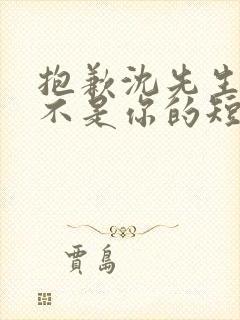 抱歉沈先生
不是你的短
贾岛